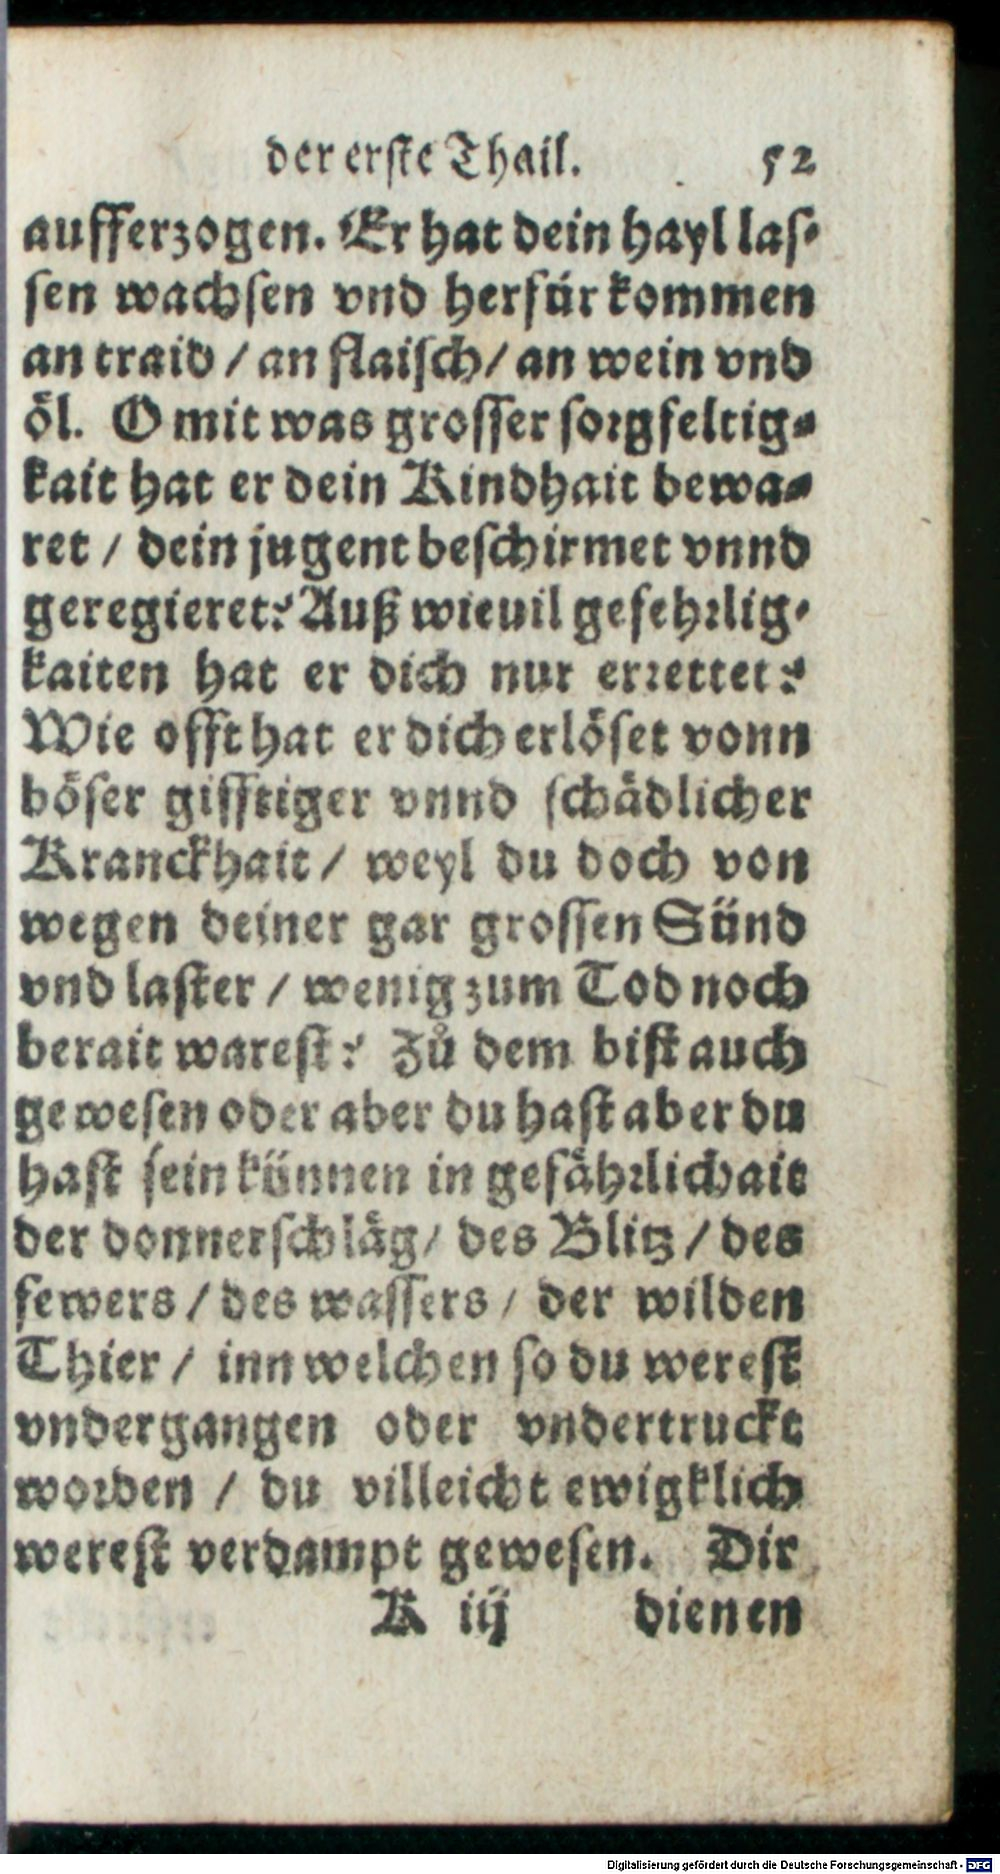 der erste Thail. 52
aufferzogen. Er hat dein hayl las-
sen wachsen vnd herfür kommen
an traid / an flaisch / an wein vnd
öl. O mit was grosser sorgfeltig-
kait hat er dein Kindhait bewa-
ret / dein jugent beschirmet vnnd
geregieret? Auß wieuil gefehrlig-
kaiten hat er dich nur errettet?
Wie offt hat er dich erlöset vonn
böser gifftiger vnnd schädlicher
Kranckhait / weyl du doch von
wegen deiner gar grossen Sünd
vnd laster / wenig zum Tod noch
berait warest? Zů dem bist auch
gewesen oder aber du hast aber du
hast sein künnen in gefährlichait
der donnerschläg / des Blitz / des
fewers / des wassers / der wilden
Thier / inn welchen so du werest
vndergangen oder vndertruckt
worden / du villeicht ewigklich
werest verdampt gewesen. Dir
K iij dienen
Digitalisierung gefördert durch die Deutsche Forschungsgemeinschaft - DFG